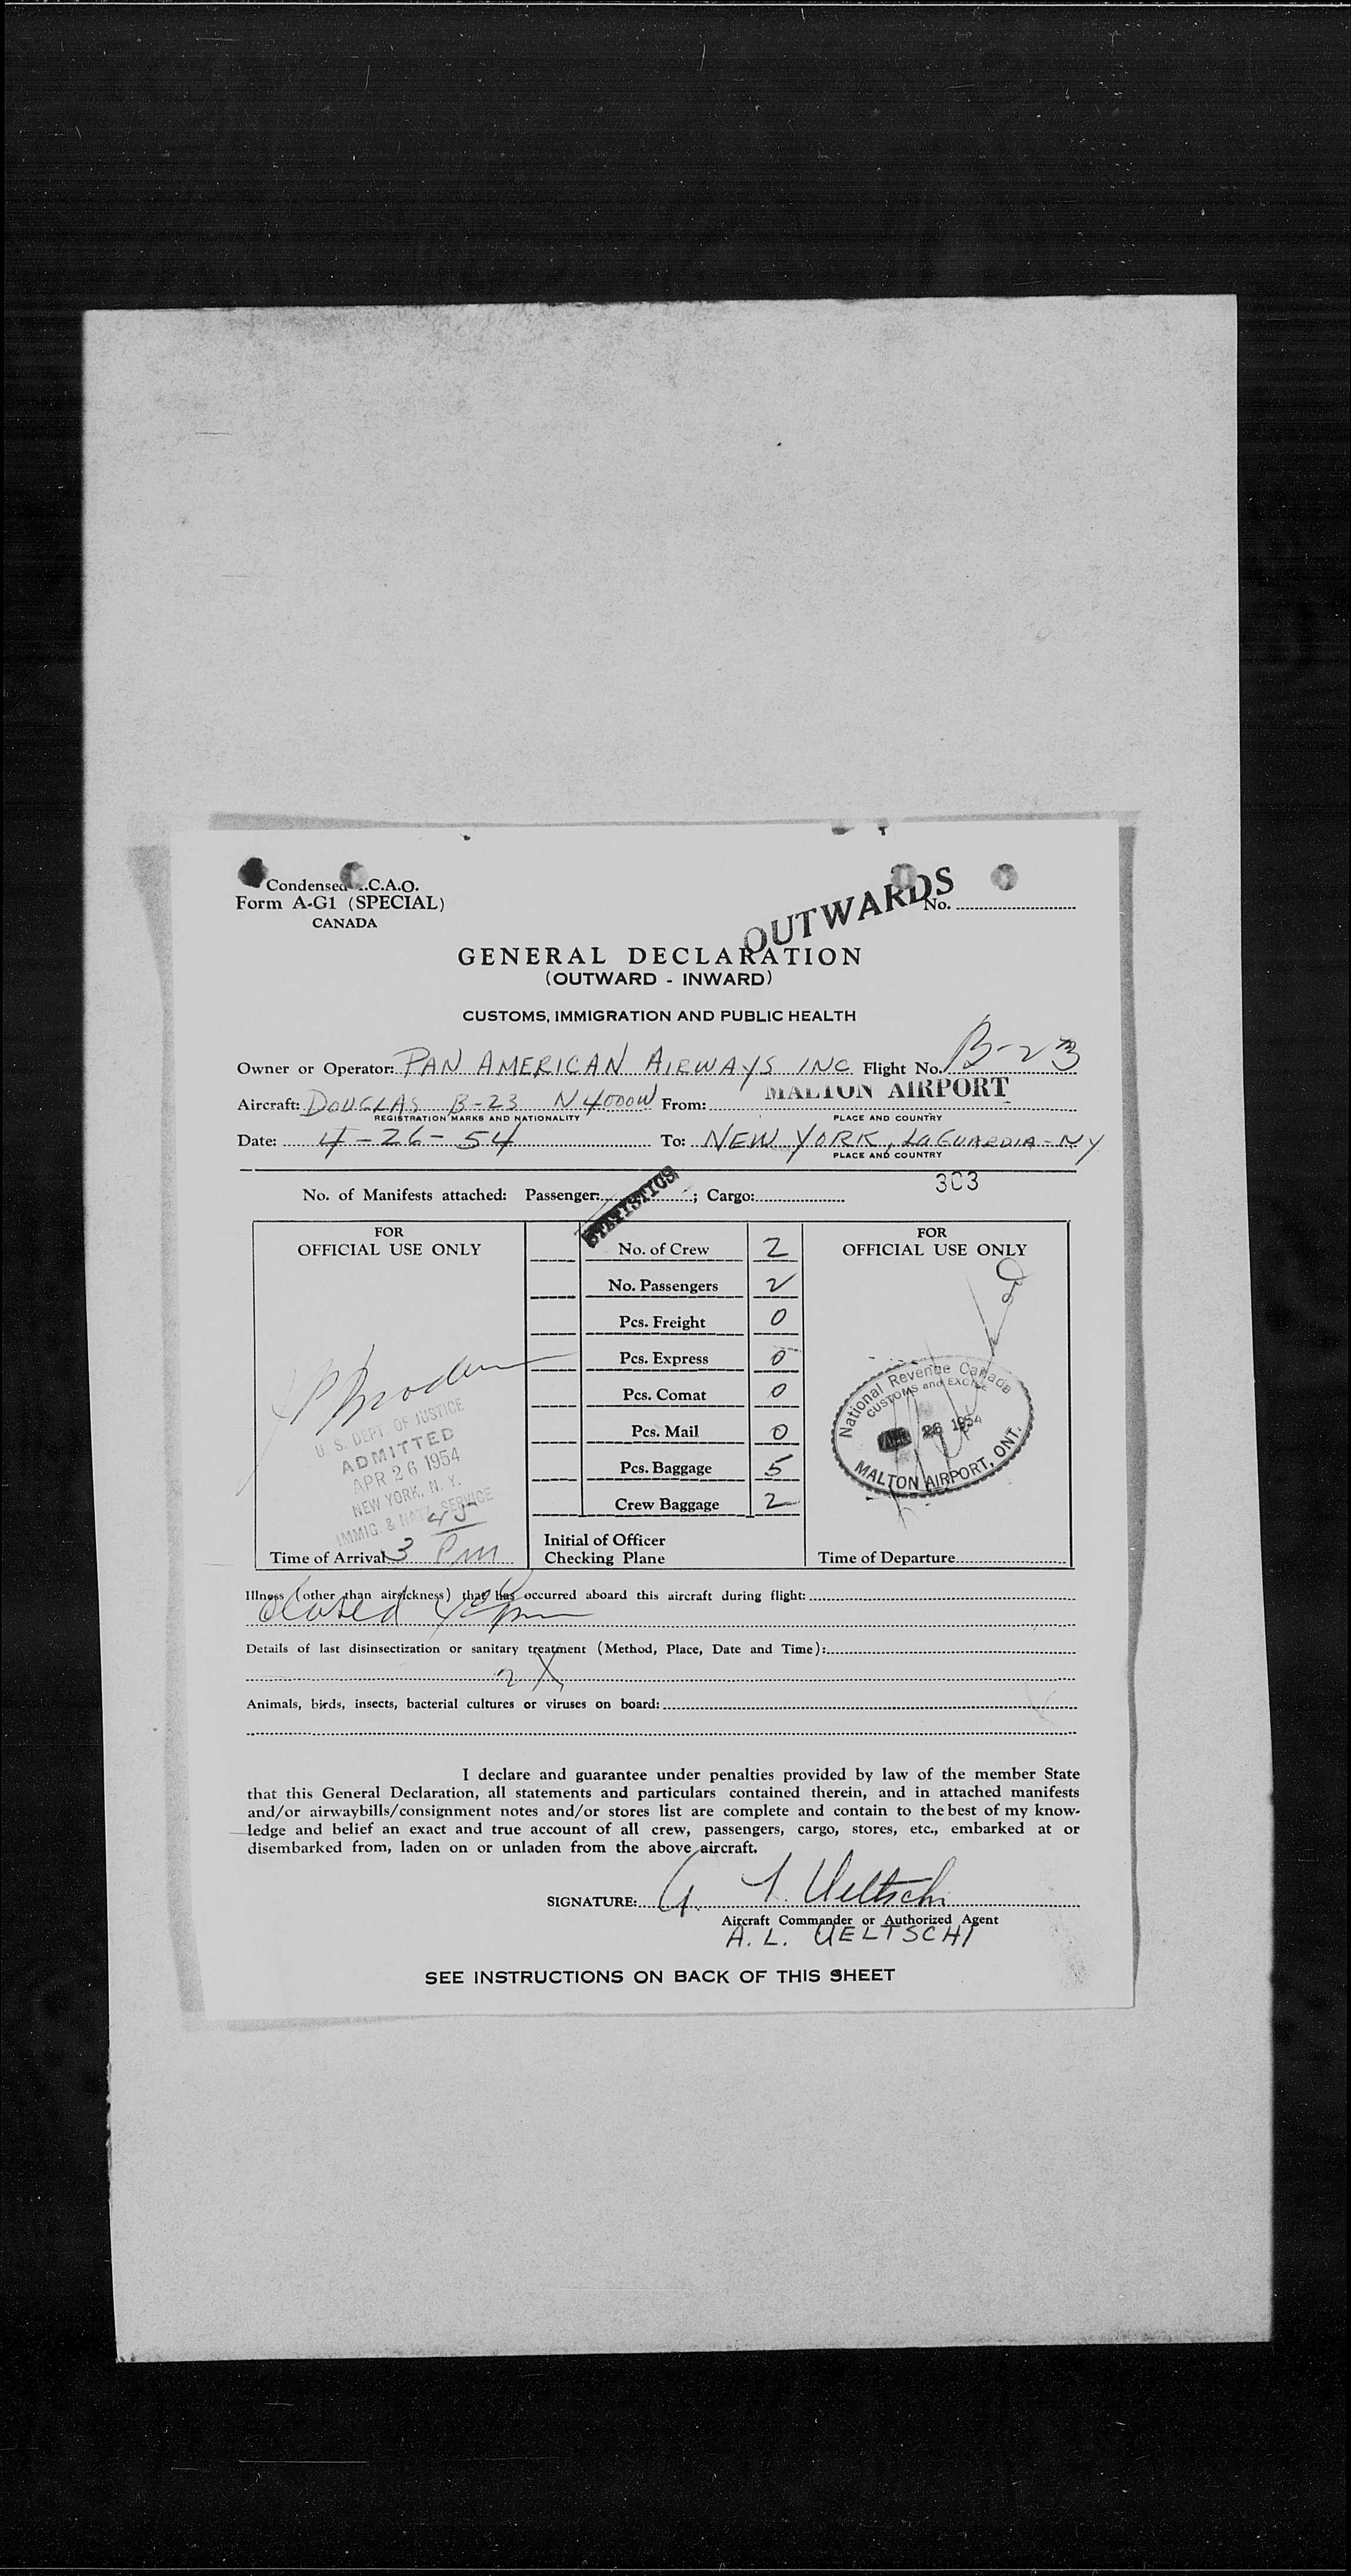 Condensed I.C.A.O.
Form A-G1 (SPECIAL)
CANADA
OUTWARDS
No.
GENERAL DECLARATION
(OUTWARD - INWARD)
CUSTOMS, IMMIGRATION AND PUBLIC HEALTH
Owner or Operator: PAN AMERICAN AIRWAYS INC Flight No. B-23
Aircraft: DOUGLAS B-23 N4000W From: MALTON AIRPORT
REGISTRATION MARKS AND NATIONALITY PLACE AND COUNTRY
Date: 4-26-54 To: NEW YORK, LAGUARDIA-NY
PLACE AND COUNTRY
303
No. of Manifests attached: Passenger: ; Cargo:
STATISTICS
FOR
OFFICIAL USE ONLY
U. S. DEPT. OF JUSTICE
ADMITTED
APR 26 1954
NEW YORK, N. Y.
IMMIG. & NATZ. SERVICE
Time of Arrival 3 45 PM
No. of Crew 2
No. Passengers 2
Pcs. Freight 0
Pcs. Express 0
Pcs. Comat 0
Pcs. Mail 0
Pcs. Baggage 5
Crew Baggage 2
Initial of Officer
Checking Plane
FOR
OFFICIAL USE ONLY
National Revenue Canada
CUSTOMS and EXCISE
APR 26 1954
MALTON AIRPORT, ONT.
Time of Departure
Illness (other than airsickness) that has occurred aboard this aircraft during flight:
Details of last disinsectization or sanitary treatment (Method, Place, Date and Time):
Animals, birds, insects, bacterial cultures or viruses on board:
I declare and guarantee under penalties provided by law of the member State
that this General Declaration, all statements and particulars contained therein, and in attached manifests
and/or airwaybills/consignment notes and/or stores list are complete and contain to the best of my know-
ledge and belief an exact and true account of all crew, passengers, cargo, stores, etc., embarked at or
disembarked from, laden on or unladen from the above aircraft.
SIGNATURE: A. L. Ueltschi
Aircraft Commander or Authorized Agent
A. L. UELTSCHI
SEE INSTRUCTIONS ON BACK OF THIS SHEET